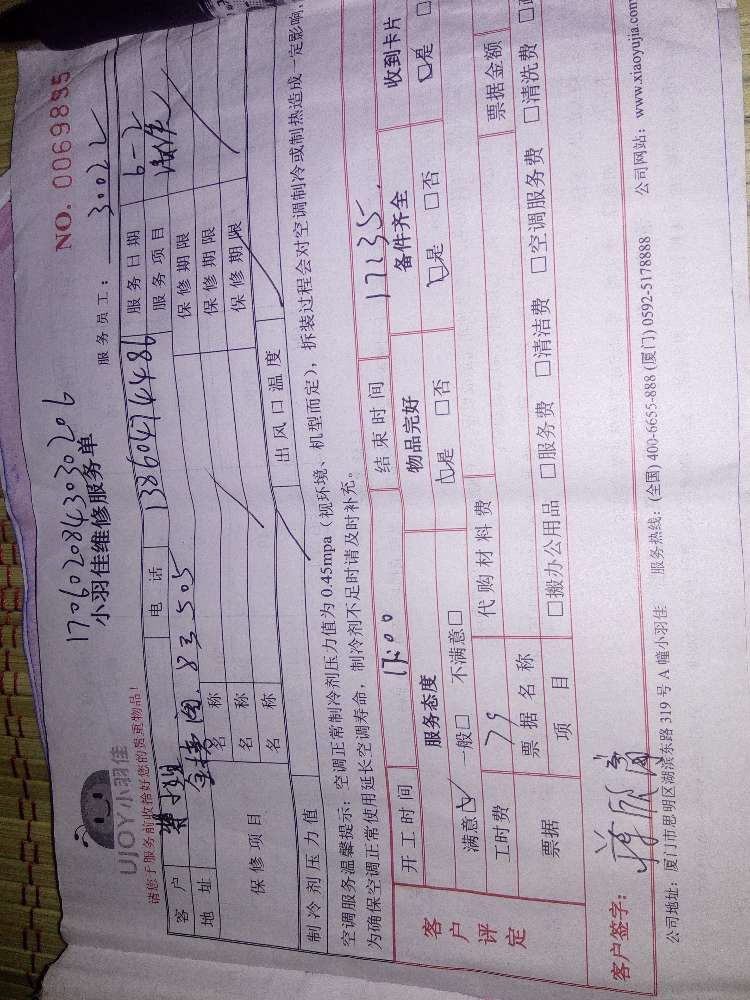 NO. 0069895
1706020843030206
小羽佳维修服务单
UJOY小羽佳
请您于服务前收捡好您的贵重物品!
服务员工: 30022
客户 电话 13860474486 服务日期 6-2
地址 83 505 服务项目
保修项目 名称 保修期限
名称 保修期限
名称 保修期限
制冷剂压力值 出风口温度
空调服务温馨提示: 空调正常制冷剂压力值为 0.45mpa (视环境、机型而定), 拆装过程会对空调制冷或制热造成一定影响,
为确保空调正常使用延长空调寿命, 制冷剂不足时请及时补充。
客户评定
开工时间 17:00 结束时间 17:35
服务态度 物品完好 备件齐全 收到卡片
满意☑ 一般□ 不满意□ ☑是 □否 ☑是 □否 ☑是 □
工时费 79 代购材料费
票据 票据名称 票据金额
项目 □搬办公用品 □服务费 □清洁费 □空调服务费 □清洗费
客户签字:
公司地址: 厦门市思明区湖滨东路 319 号 A 幢小羽佳 服务热线: (全国) 400-6655-888 (厦门) 0592-5178888 公司网站: www.xiaoyujia.com